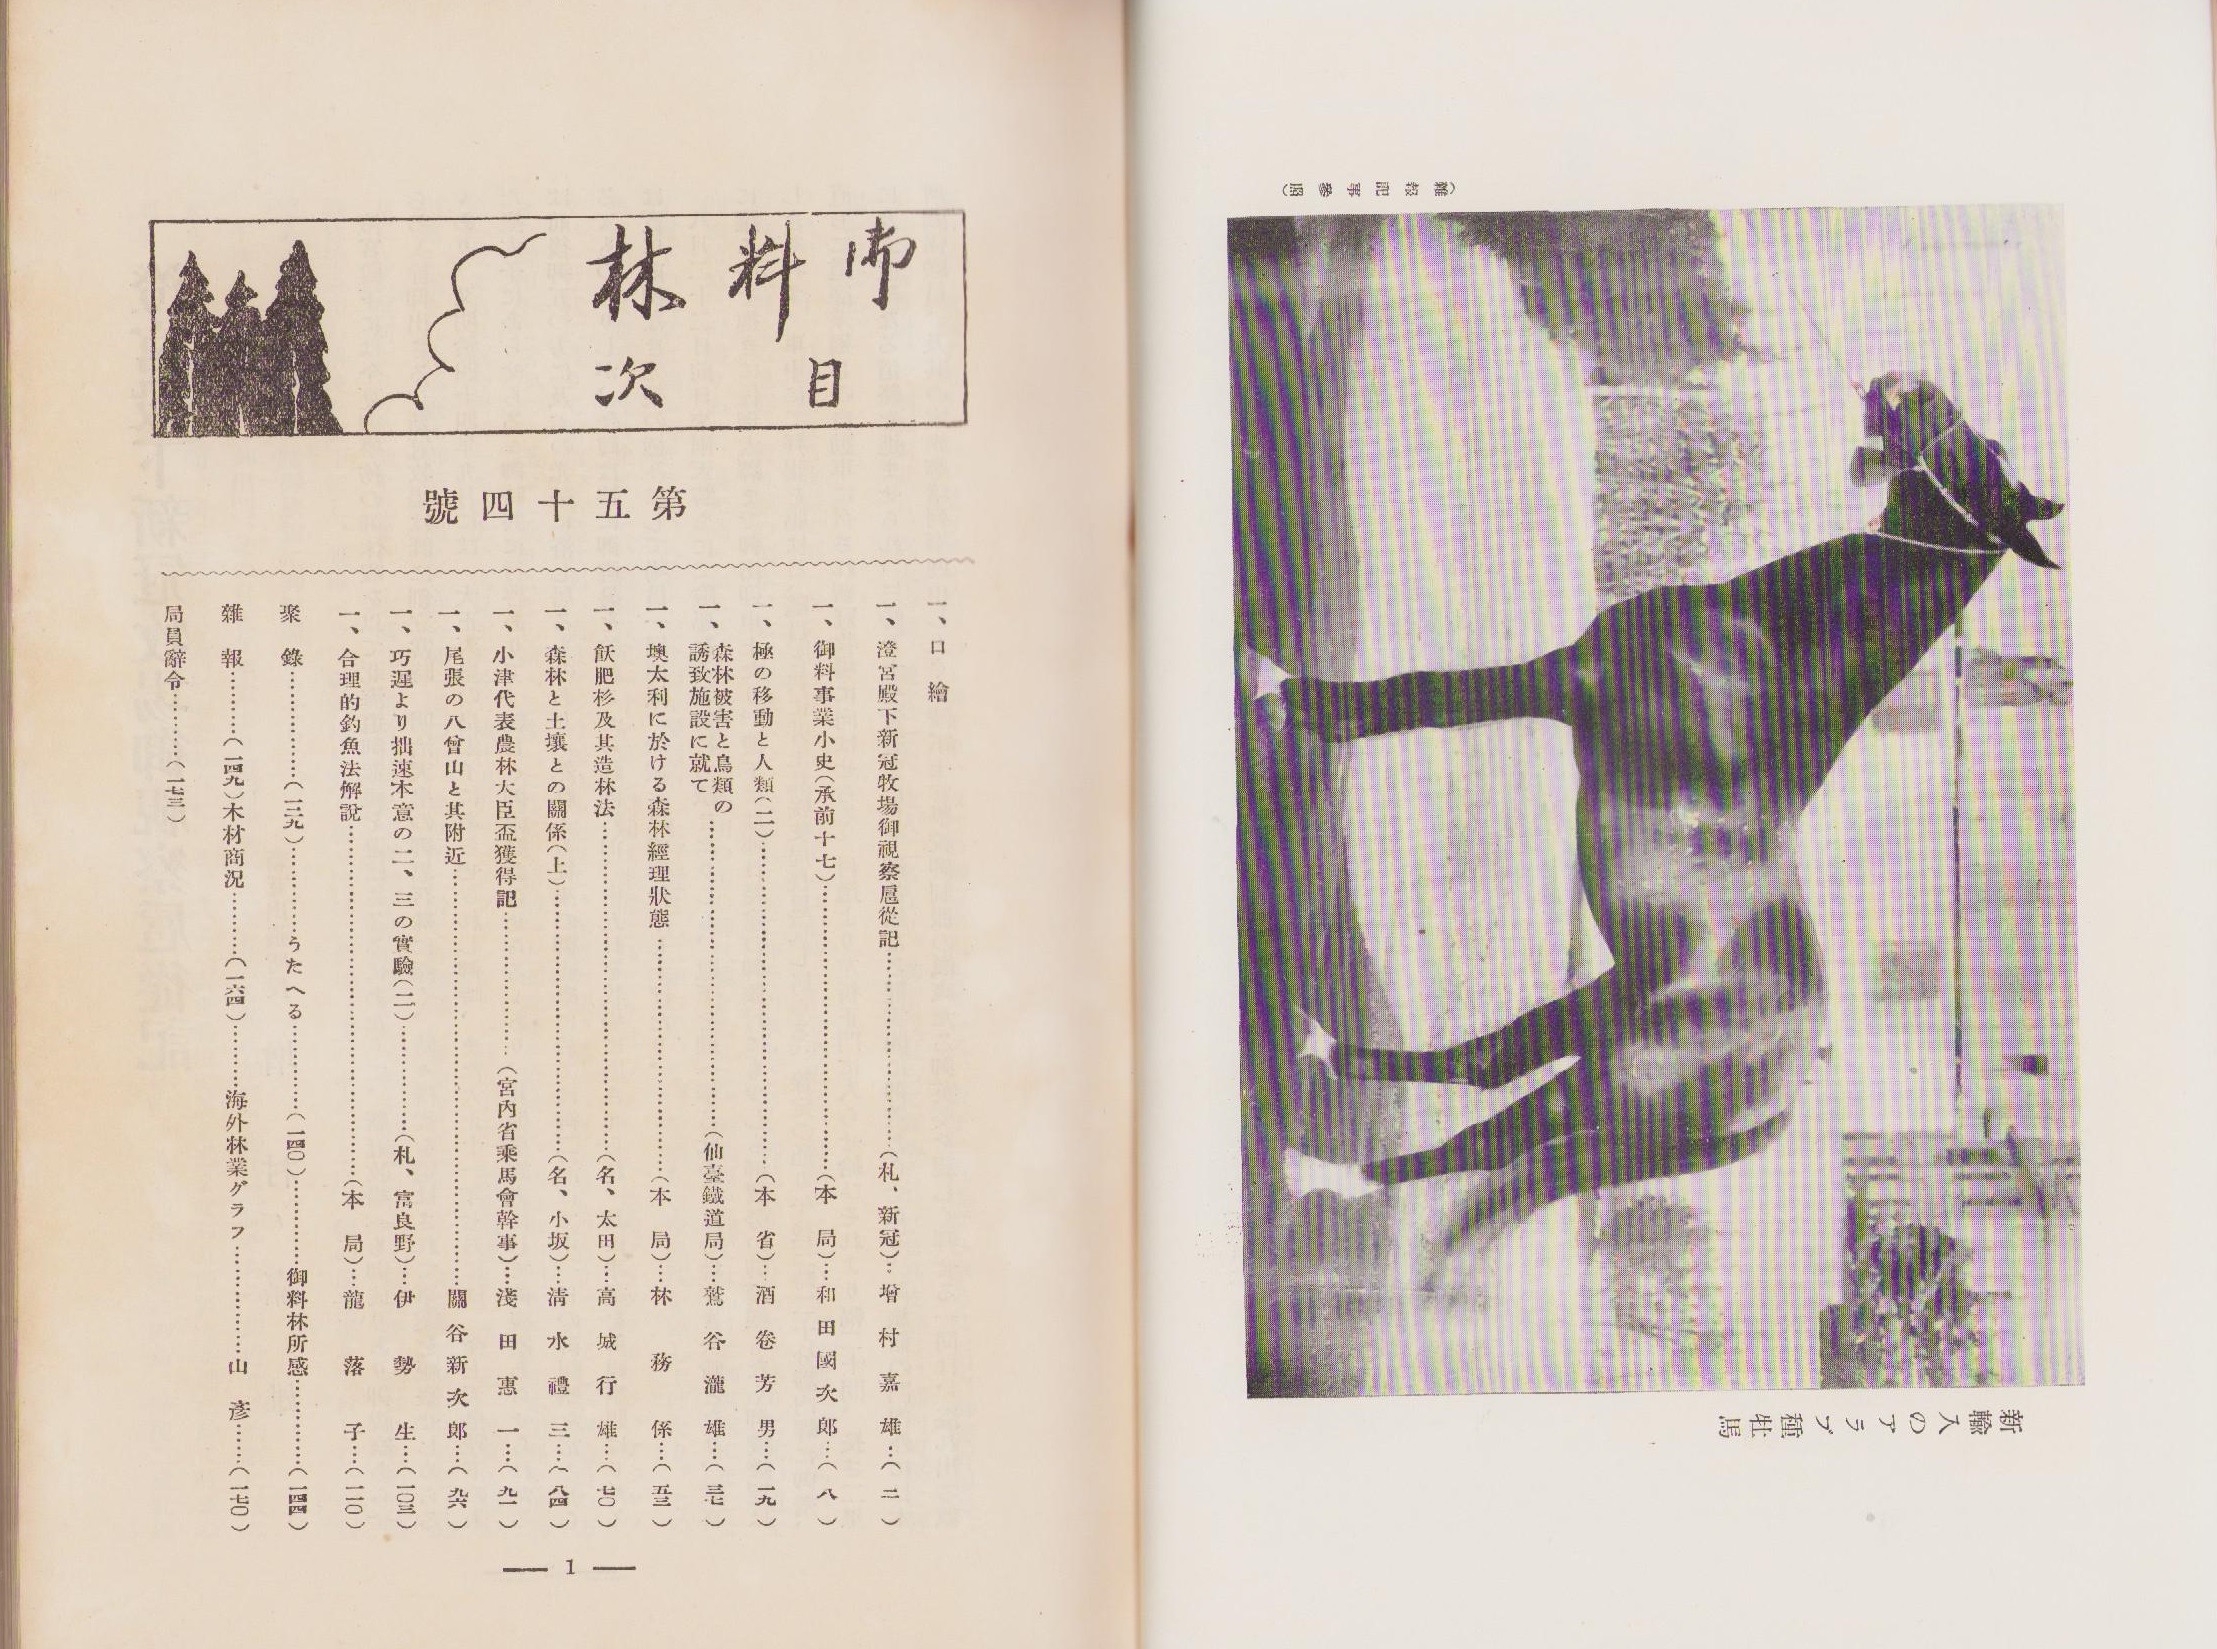 (雜報記事參照)
新輸入のアラブ種牡馬
御料林
目次
第五十四號
一、口繪
一、澄宮殿下新冠牧場御視察扈從記…………(札、新冠)…增村嘉雄…(二)
一、御料事業小史(承前十七)…………(本局)…和田國次郎…(八)
一、極の移動と人類(二)…………(本省)…酒卷芳男…(一九)
一、森林被害と鳥類の
誘致施設に就て…………(仙臺鐵道局)…鷲谷瀧雄…(三七)
一、墺太利に於ける森林經理狀態…………(本局)…林務係…(五三)
一、飫肥杉及其造林法…………(名、太田)…高城行雄…(七〇)
一、森林と土壤との關係(上)…………(名、小坂)…淸水禮三…(八四)
一、小津代表農林大臣盃獲得記…………(宮內省乘馬會幹事)…淺田惠一…(九一)
一、尾張の八曾山と其附近…………關谷新次郎…(九六)
一、巧遲より拙速木意の二、三の實驗(二)…………(札、富良野)…伊勢生…(一〇三)
一、合理的釣魚法解說…………(本局)…龍落子…(一一〇)
聚錄…………(一三九)…………うたへる…………(一四〇)…………御料林所感…………(一四四)
雜報…………(一四九)木材商況…………(一六四)…………海外林業グラフ…………山彥…(一七〇)
局員辭令…………(一七三)
— 1 —